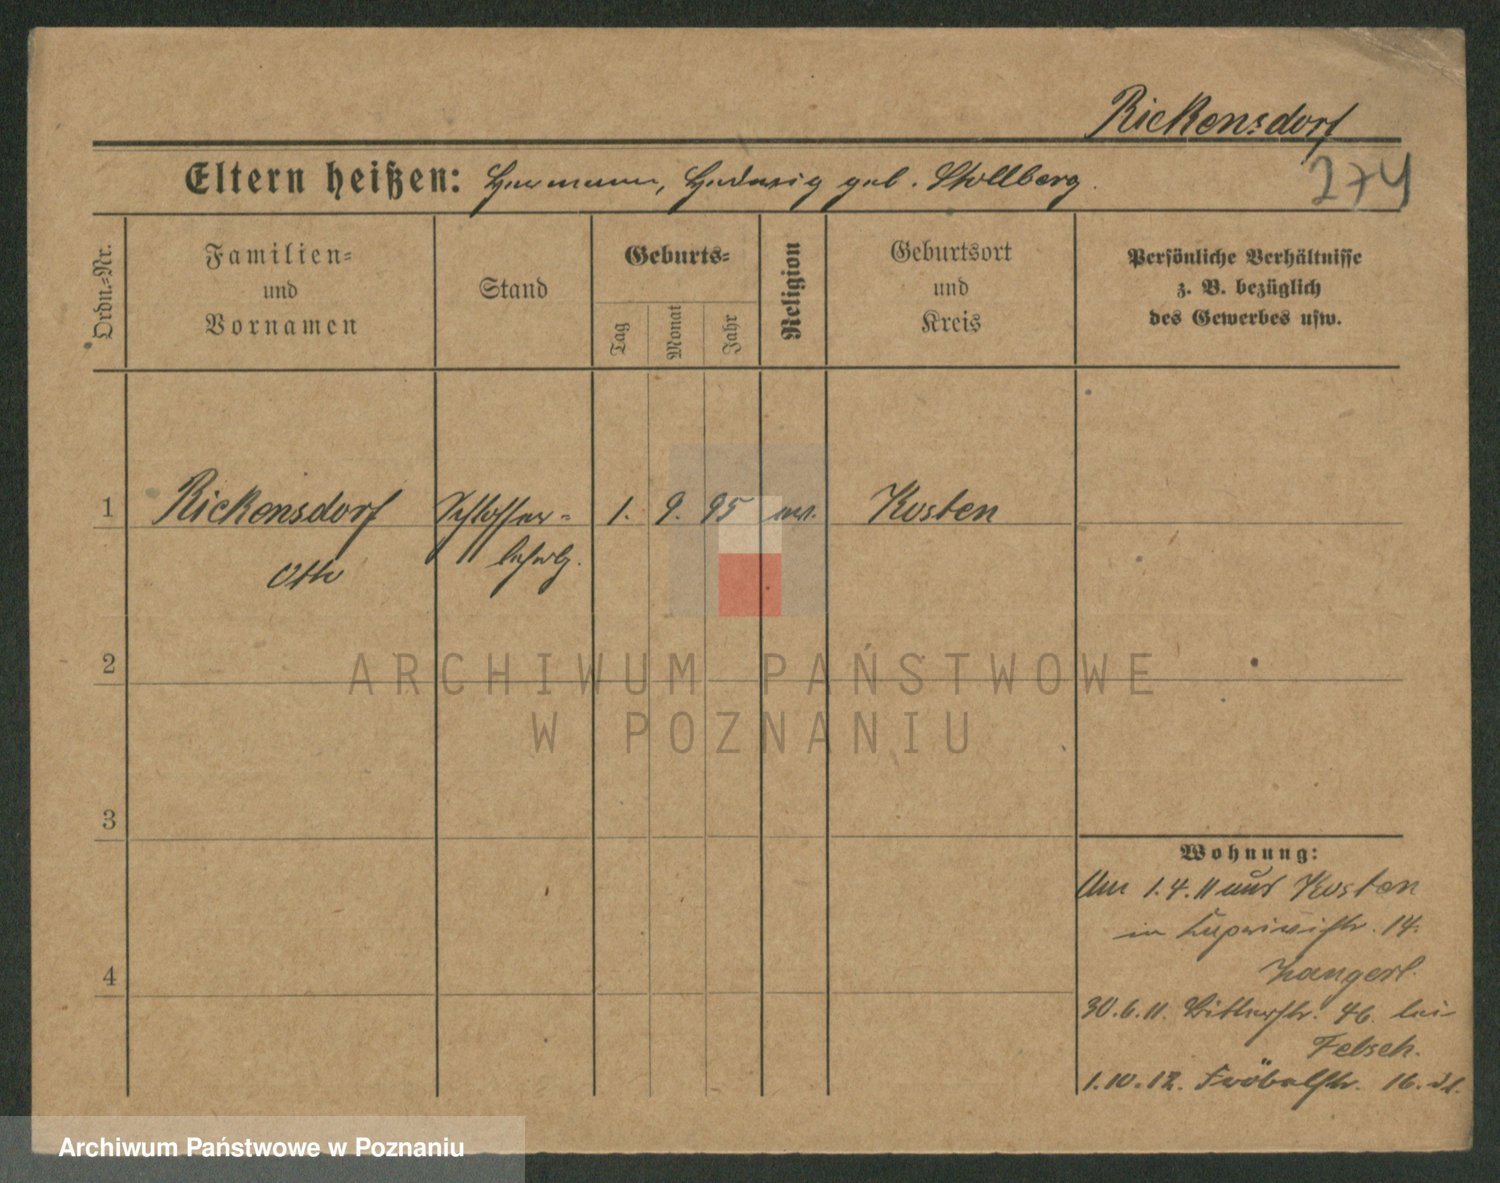 Rickensdorf
Eltern heißen: Hermann, Hedwig geb. Stollberg.
274
Ordn.-Nr.
Familien-
und
Vornamen
Stand
Geburts-
Tag
Monat
Jahr
Religion
Geburtsort
und
Kreis
Persönliche Verhältnisse
z. B. bezüglich
des Gewerbes usw.
1 Rickensdorf Schlosser- 1. 9. 95 ev. Kosten
Otto lehrlg.
2
ARCHIWUM PAŃSTWOWE
W POZNANIU
3
4
Wohnung:
Am 1.4.11 aus Kosten
in 14.
30.6.11. Bitterstr. 46. bei
Felsch.
1.10.12. Fröbelstr. 16.
Archiwum Państwowe w Poznaniu